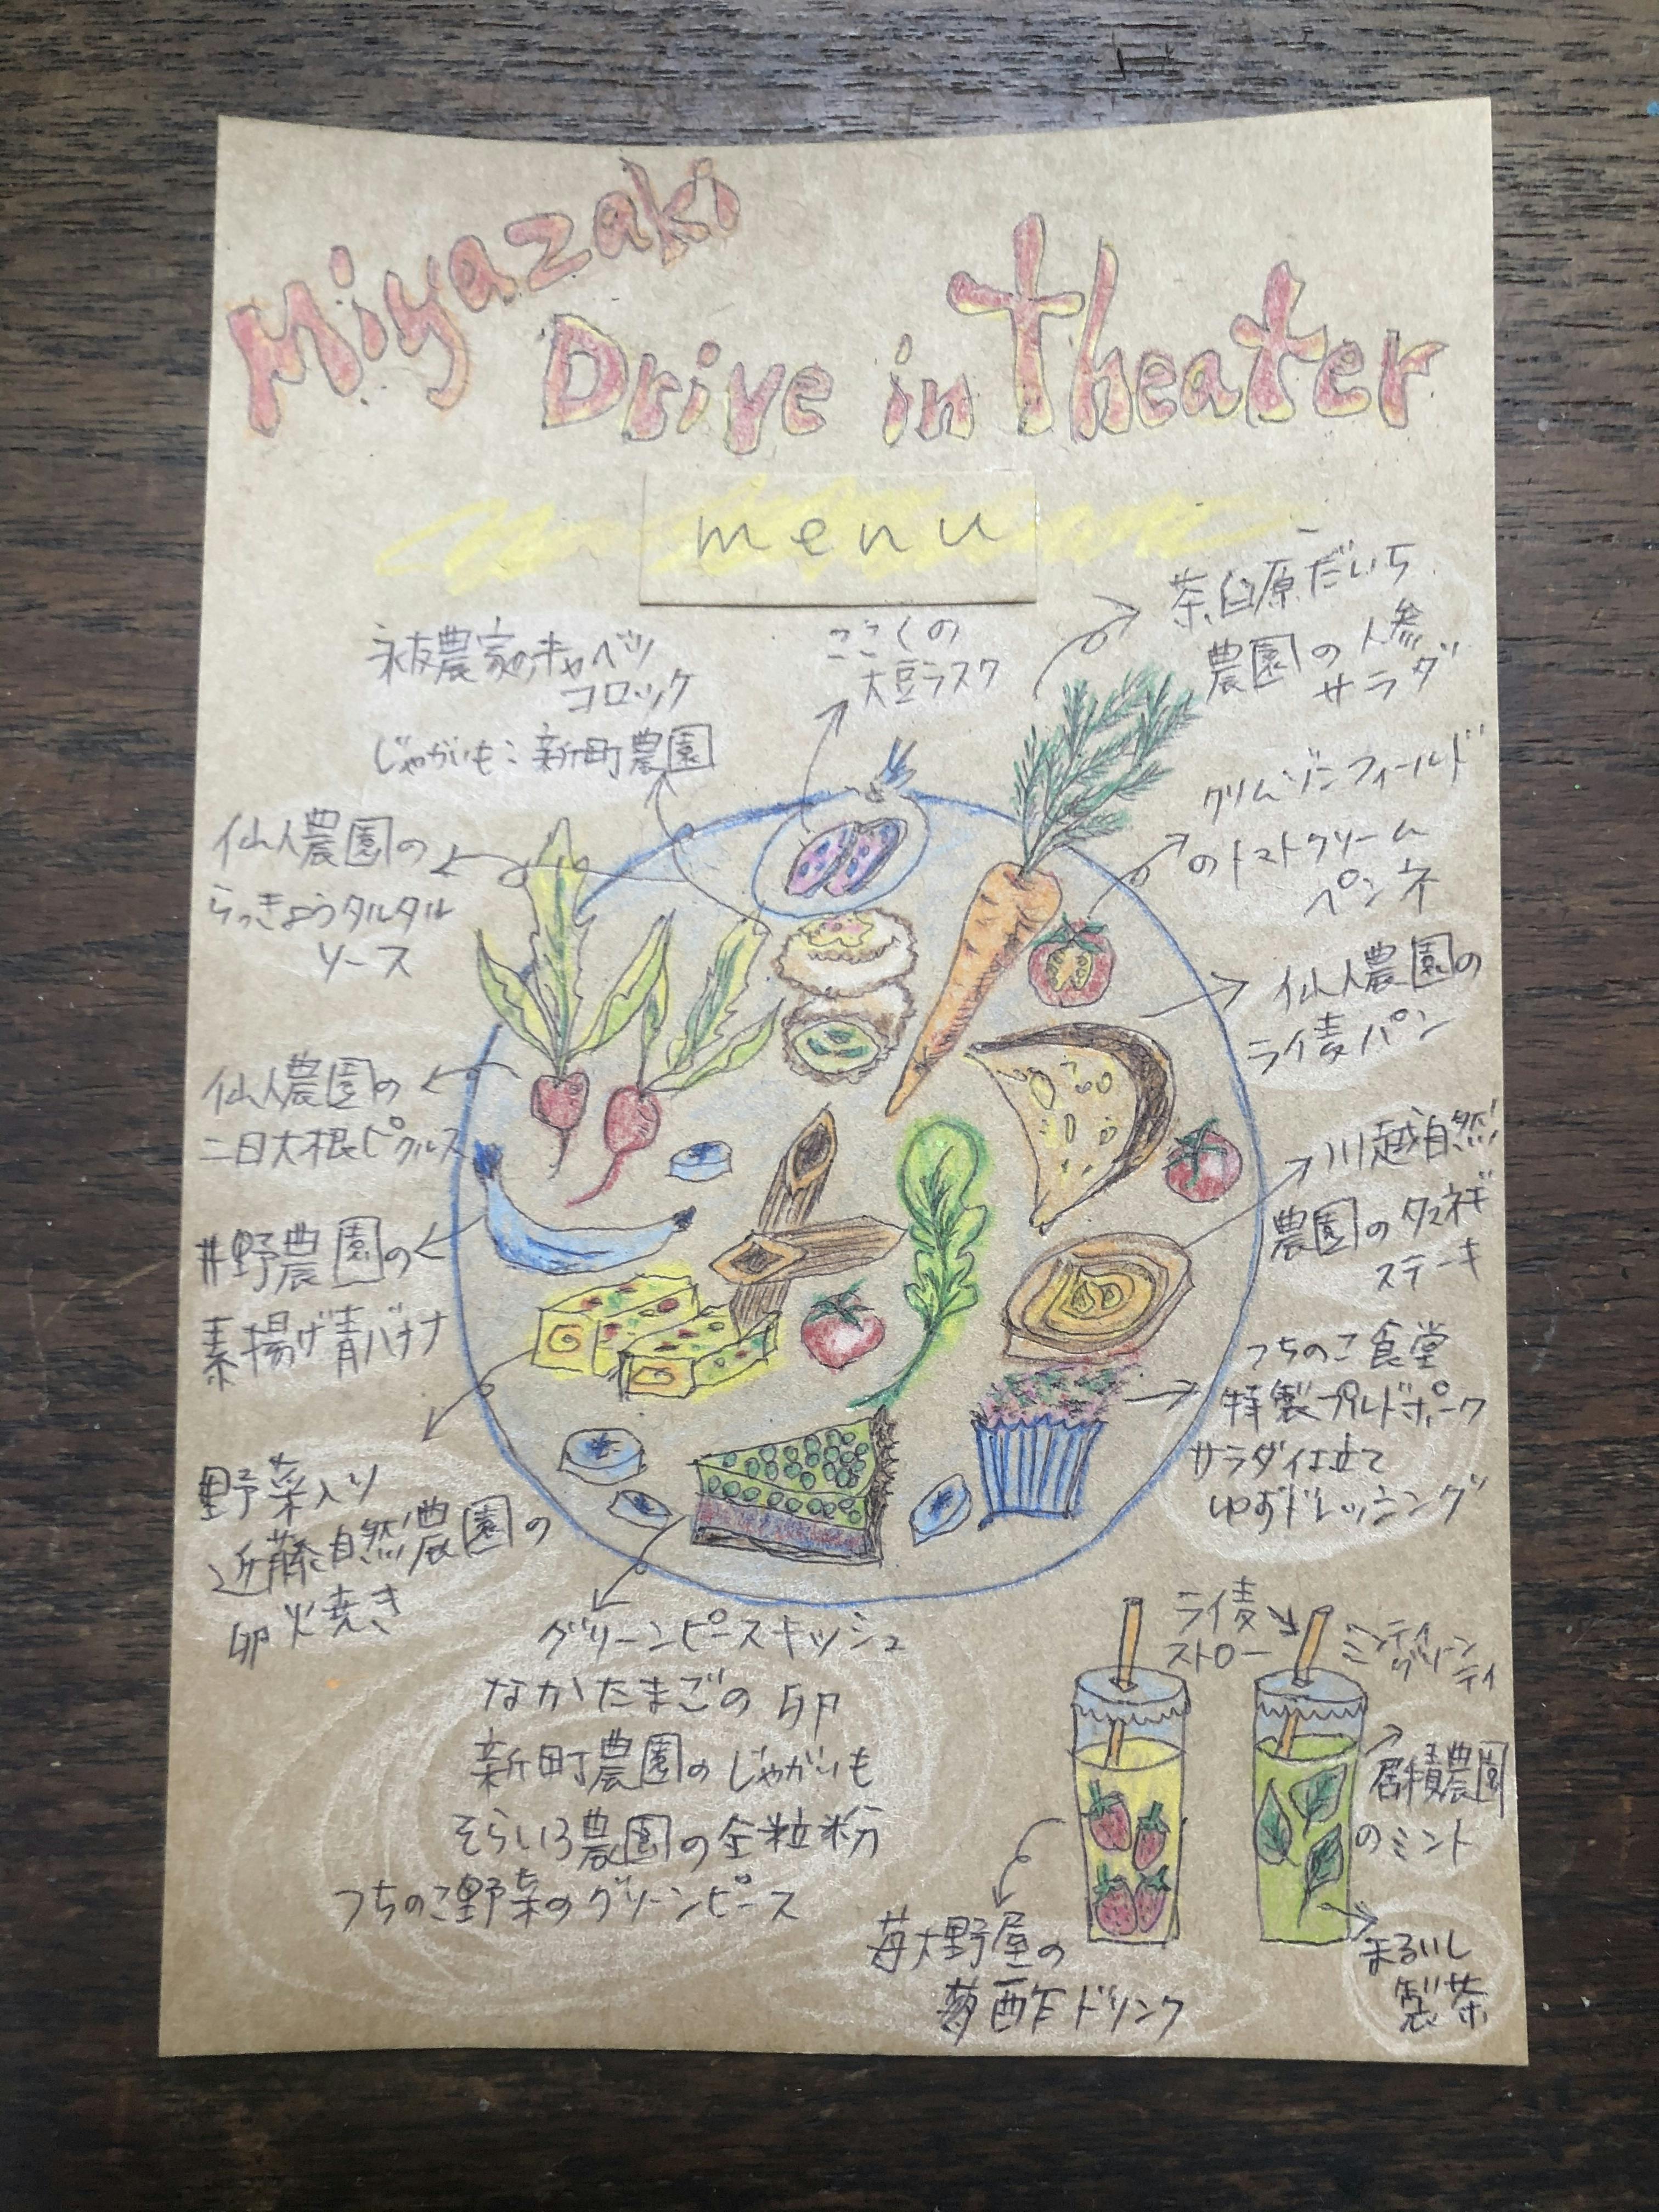 Miyazaki
Drive in Theater
menu
永友農家のキャベツ
コロッケ
じゃがいも:新町農園
ここくの
大豆ラスク
茶臼原だいち
農園の人参
サラダ
クリムゾンフィールド
のトマトクリーム
ペンネ
仙人農園の
らっきょうタルタル
ソース
仙人農園の
ライ麦パン
仙人農園の
二日大根ピクルス
川越自然
農園のタマネギ
ステーキ
井野農園の
素揚げ青バナナ
つちのこ食堂
特製プルドポーク
サラダ仕立て
ゆずドレッシング
野菜入り
近藤自然農園の
卵焼き
グリーンピースキッシュ
なかたまごの卵
新町農園のじゃがいも
そらいろ農園の全粒粉
つちのこ野菜のグリーンピース
ライ麦
ストロー
ミンティ
グリーン
ティ
農園
のミント
苺大野屋の
酢ドリンク
まるいし
製茶